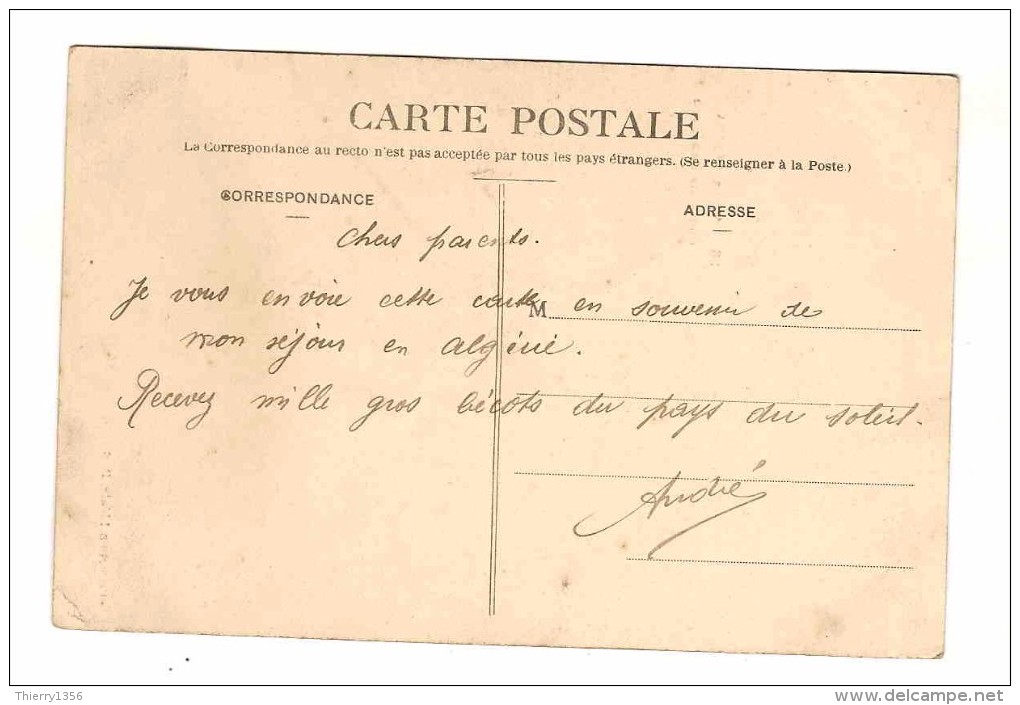 CARTE POSTALE
La Correspondance au recto n'est pas acceptée par tous les pays étrangers. (Se renseigner à la Poste.)
CORRESPONDANCE
ADRESSE
Chers parents.
Je vous envoie cette carte en souvenir de
M
mon séjour en algérie.
Recevez mille gros bécots du pays du soleil.
André
Thierry1356
www.delcampe.net